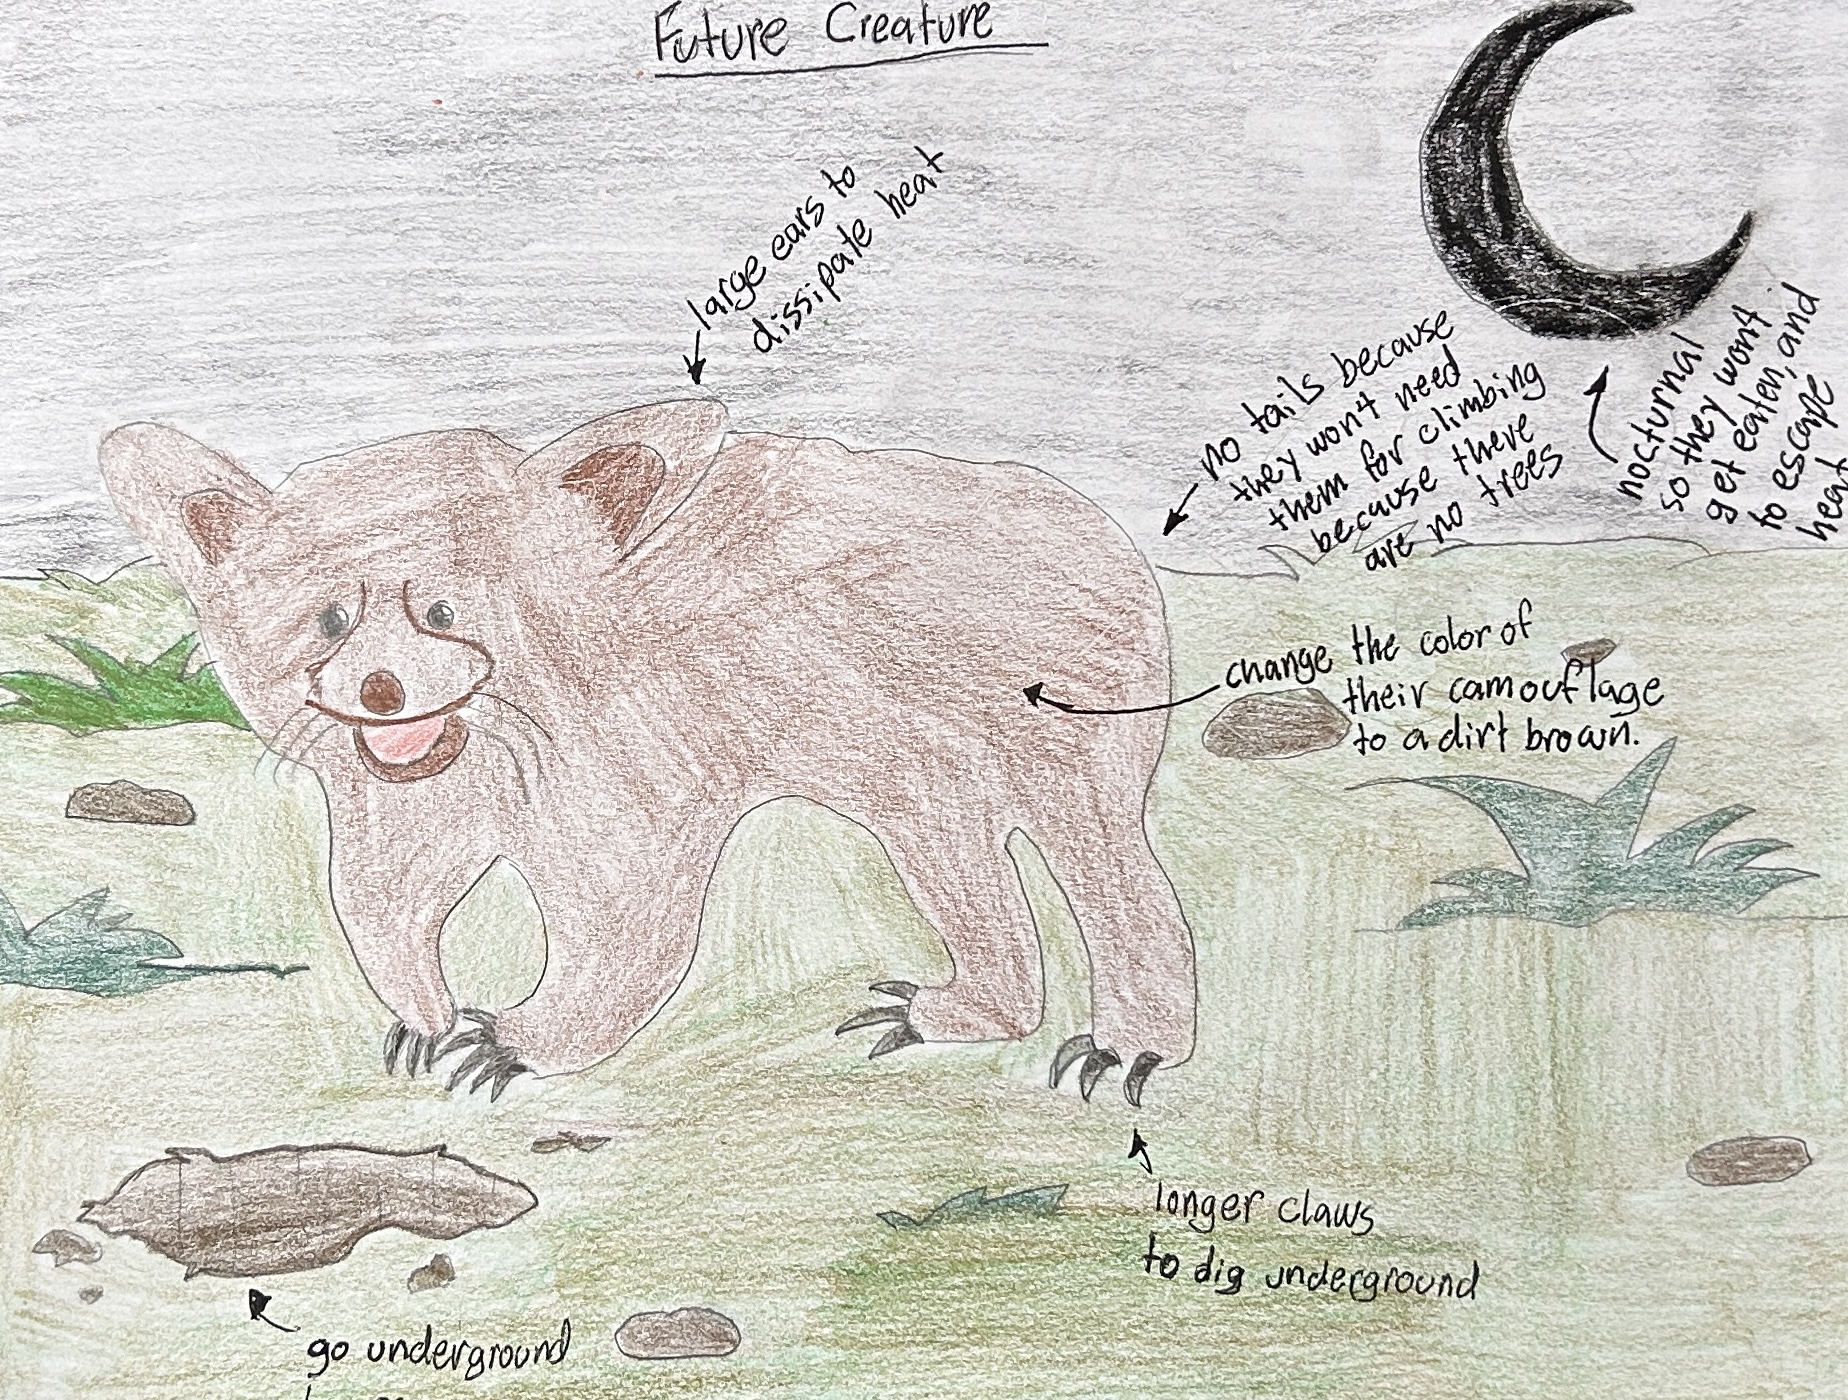 Future Creature
large ears to
dissipate heat
no tails because
they won't need
them for climbing
because there
are no trees
nocturnal
so they won't
get eaten, and
to escape
heat
change the color of
their camouflage
to a dirt brown.
longer claws
to dig underground
go underground